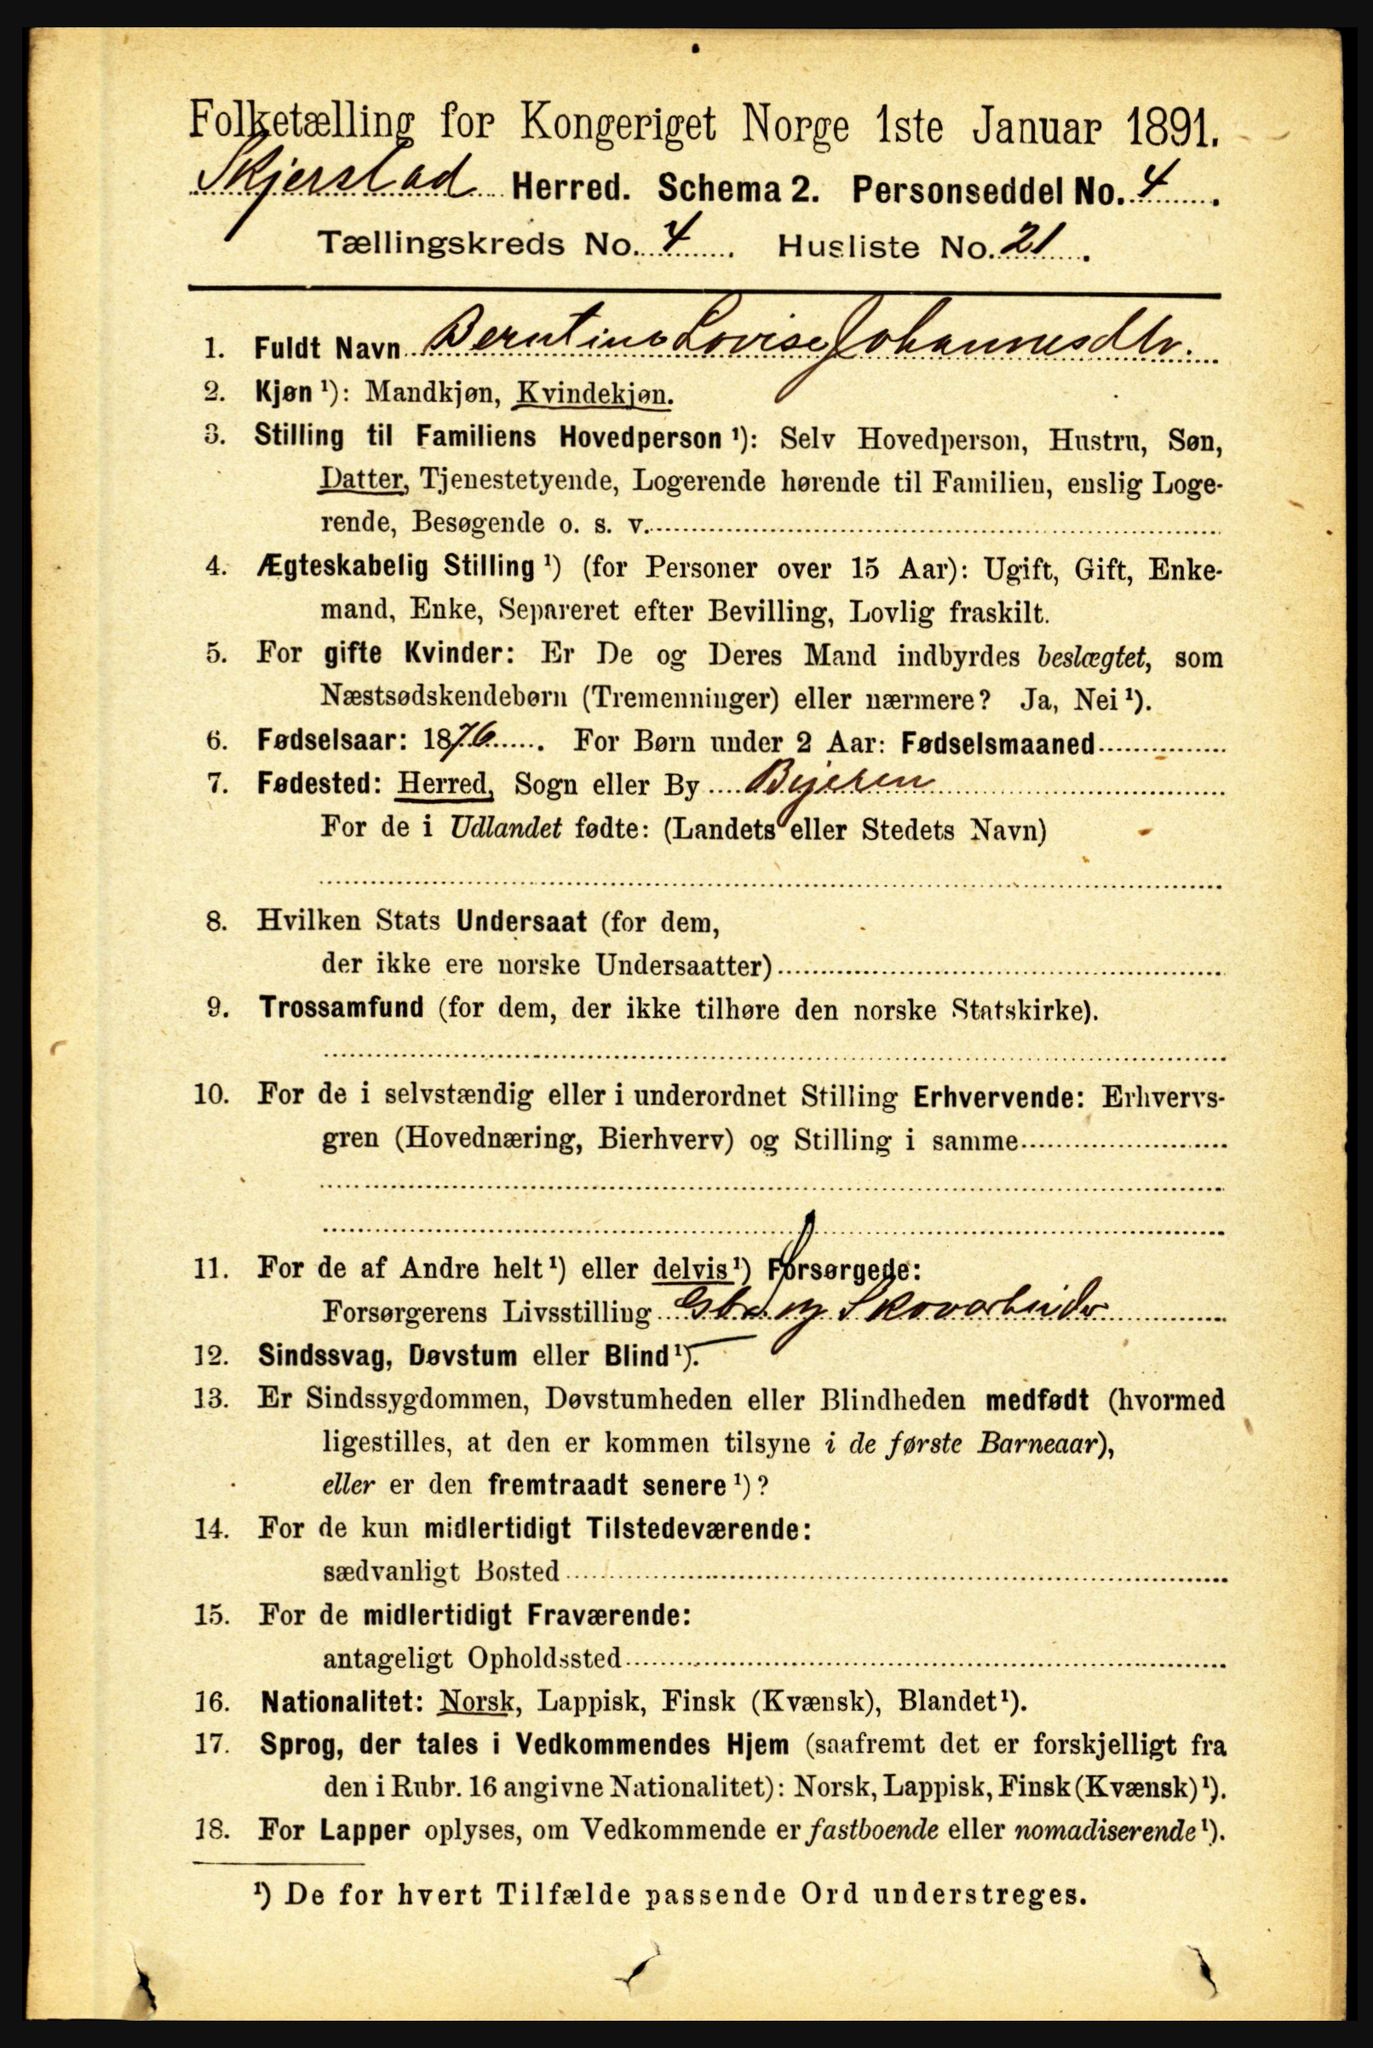 Folketælling for Kongeriget Norge 1ste Januar 1891.
Skjerstad Herred. Schema 2. Personseddel No. 4.
Tællingskreds No. 4. Husliste No. 21.
1. Fuldt Navn Berntine Lovise Johannesdtr.
2. Kjøn ¹): Mandkjøn, Kvindekjøn.
3. Stilling til Familiens Hovedperson ¹): Selv Hovedperson, Hustru, Søn,
Datter, Tjenestetyende, Logerende hørende til Familien, enslig Loge-
rende, Besøgende o. s. v.
4. Ægteskabelig Stilling ¹) (for Personer over 15 Aar): Ugift, Gift, Enke-
mand, Enke, Separeret efter Bevilling, Lovlig fraskilt.
5. For gifte Kvinder: Er De og Deres Mand indbyrdes beslægtet, som
Næstsødskendebørn (Tremenninger) eller nærmere? Ja, Nei ¹).
6. Fødselsaar: 1876. For Børn under 2 Aar: Fødselsmaaned
7. Fødested: Herred, Sogn eller By Bejeren
For de i Udlandet fødte: (Landets eller Stedets Navn)
8. Hvilken Stats Undersaat (for dem,
der ikke ere norske Undersaatter)
9. Trossamfund (for dem, der ikke tilhøre den norske Statskirke).
10. For de i selvstændig eller i underordnet Stilling Erhvervende: Erhvervs-
gren (Hovednæring, Bierhverv) og Stilling i samme
11. For de af Andre helt ¹) eller delvis ¹) Forsørgede:
Forsørgerens Livsstilling Gbr. og Skovarbeider
12. Sindssvag, Døvstum eller Blind ¹).
13. Er Sindssygdommen, Døvstumheden eller Blindheden medfødt (hvormed
ligestilles, at den er kommen tilsyne i de første Barneaar),
eller er den fremtraadt senere ¹)?
14. For de kun midlertidigt Tilstedeværende:
sædvanligt Bosted
15. For de midlertidigt Fraværende:
antageligt Opholdssted
16. Nationalitet: Norsk, Lappisk, Finsk (Kvænsk), Blandet ¹).
17. Sprog, der tales i Vedkommendes Hjem (saafremt det er forskjelligt fra
den i Rubr. 16 angivne Nationalitet): Norsk, Lappisk, Finsk (Kvænsk) ¹).
18. For Lapper oplyses, om Vedkommende er fastboende eller nomadiserende ¹).
¹) De for hvert Tilfælde passende Ord understreges.